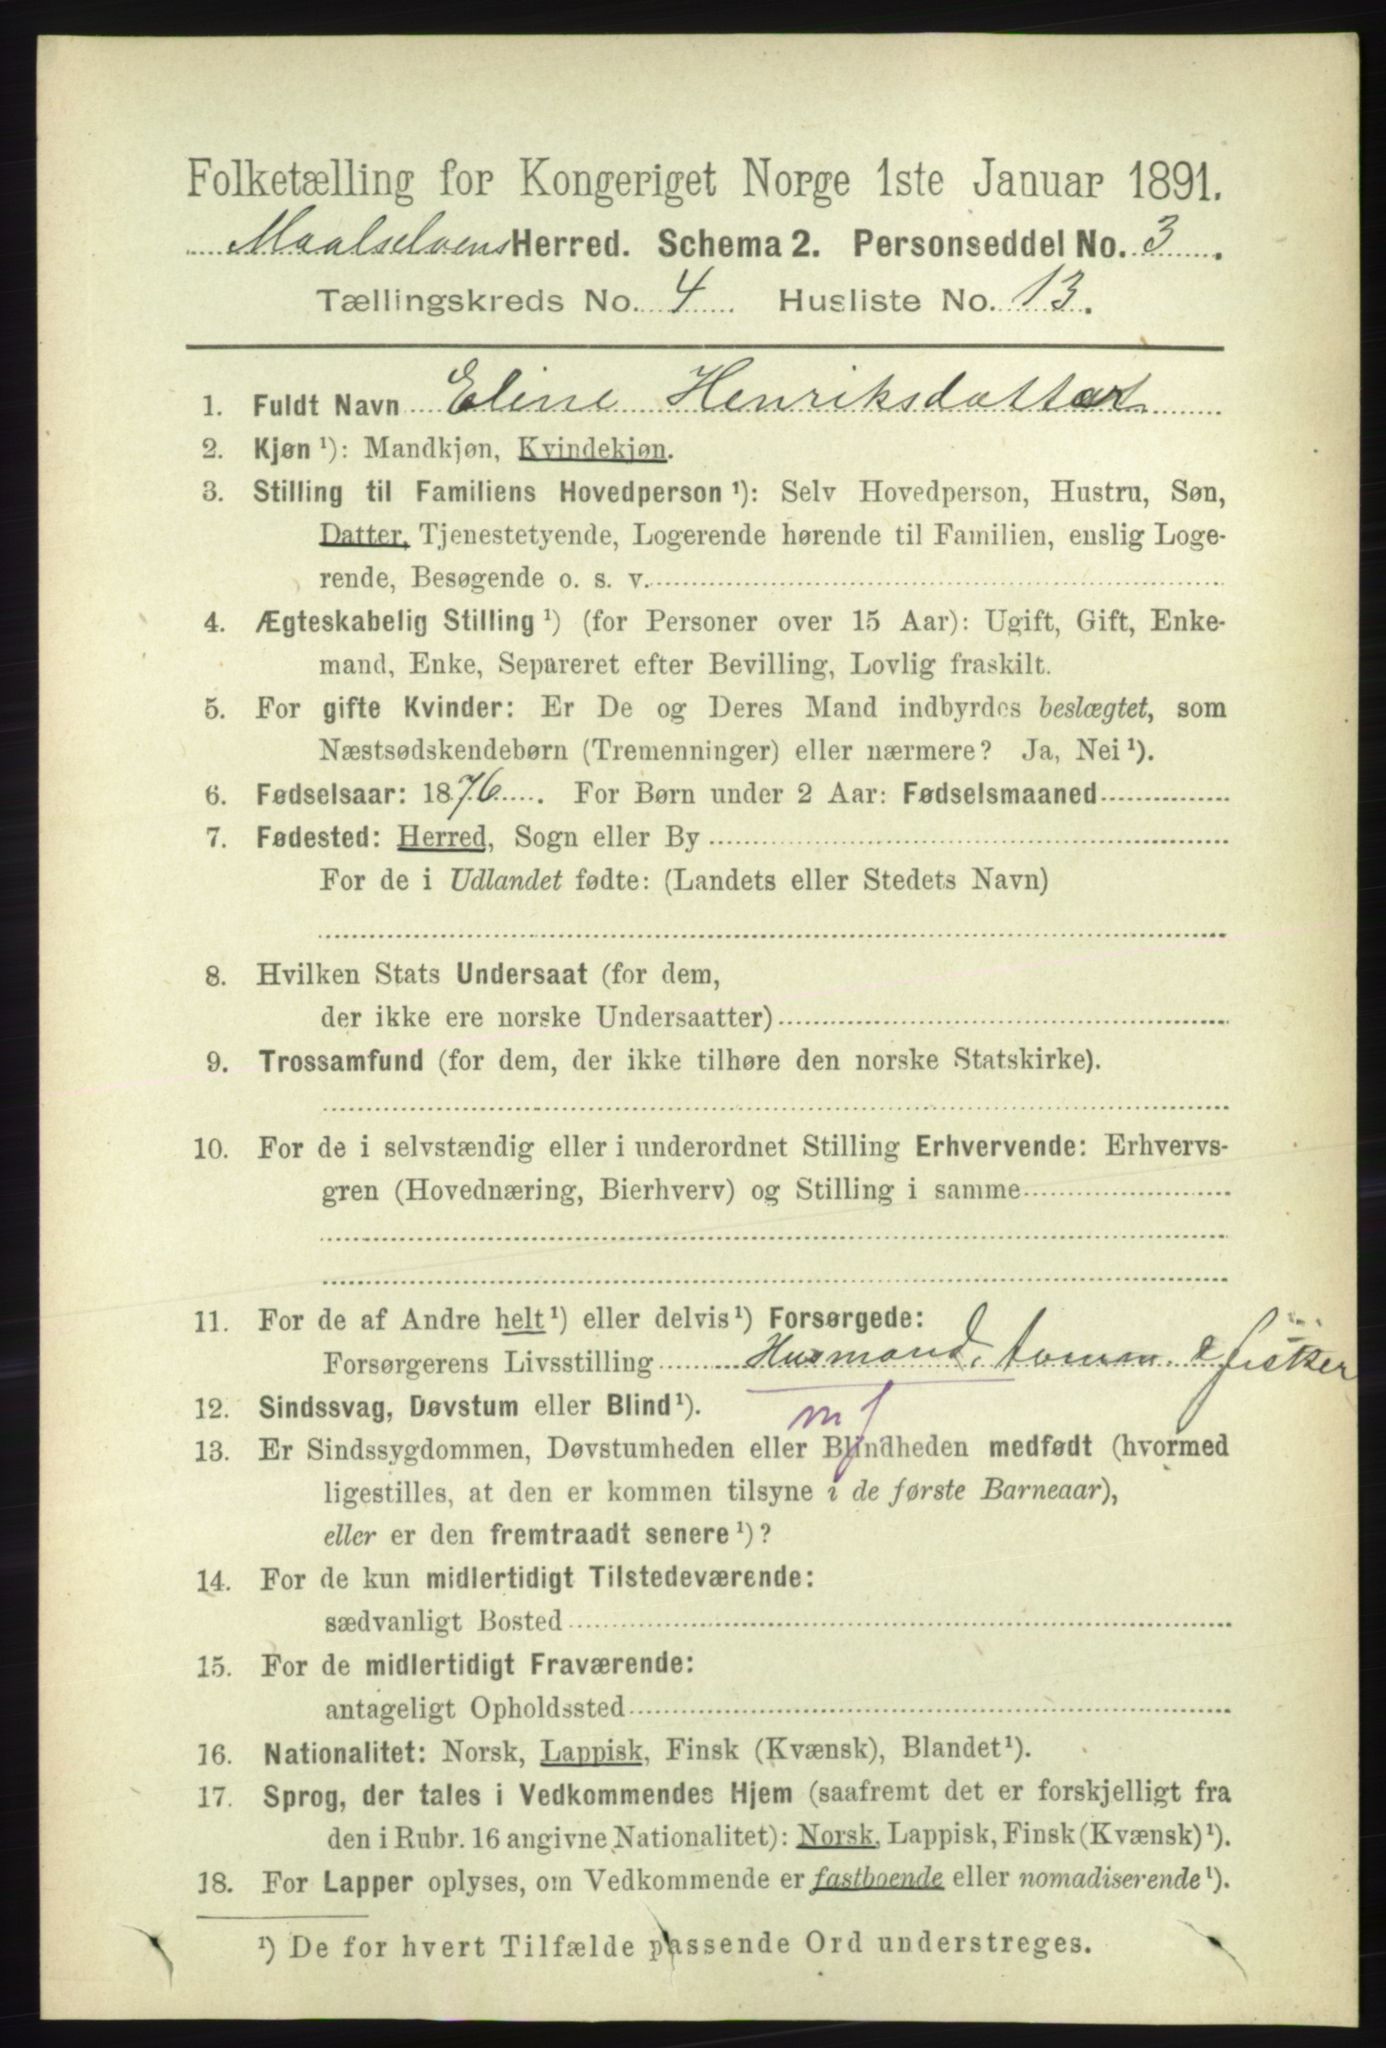 Folketælling for Kongeriget Norge 1ste Januar 1891.
Maalselvens Herred. Schema 2. Personseddel No. 3.
Tællingskreds No. 4 Husliste No. 13.
1. Fuldt Navn Eline Henriksdatter
2. Kjøn ¹): Mandkjøn, Kvindekjøn.
3. Stilling til Familiens Hovedperson ¹): Selv Hovedperson, Hustru, Søn,
Datter, Tjenestetyende, Logerende hørende til Familien, enslig Loge-
rende, Besøgende o. s. v.
4. Ægteskabelig Stilling ¹) (for Personer over 15 Aar): Ugift, Gift, Enke-
mand, Enke, Separeret efter Bevilling, Lovlig fraskilt.
5. For gifte Kvinder: Er De og Deres Mand indbyrdes beslægtet, som
Næstsødskendebørn (Tremenninger) eller nærmere? Ja, Nei ¹).
6. Fødselsaar: 1876. For Børn under 2 Aar: Fødselsmaaned
7. Fødested: Herred, Sogn eller By
For de i Udlandet fødte: (Landets eller Stedets Navn)
8. Hvilken Stats Undersaat (for dem,
der ikke ere norske Undersaatter)
9. Trossamfund (for dem, der ikke tilhøre den norske Statskirke).
10. For de i selvstændig eller i underordnet Stilling Erhvervende: Erhvervs-
gren (Hovednæring, Bierhverv) og Stilling i samme
11. For de af Andre helt ¹) eller delvis ¹) Forsørgede:
Forsørgerens Livsstilling Husmand, fisker
12. Sindssvag, Døvstum eller Blind ¹).
mf
13. Er Sindssygdommen, Døvstumheden eller Blindheden medfødt (hvormed
ligestilles, at den er kommen tilsyne i de første Barneaar),
eller er den fremtraadt senere ¹)?
14. For de kun midlertidigt Tilstedeværende:
sædvanligt Bosted
15. For de midlertidigt Fraværende:
antageligt Opholdssted
16. Nationalitet: Norsk, Lappisk, Finsk (Kvænsk), Blandet ¹).
17. Sprog, der tales i Vedkommendes Hjem (saafremt det er forskjelligt fra
den i Rubr. 16 angivne Nationalitet): Norsk, Lappisk, Finsk (Kvænsk) ¹).
18. For Lapper oplyses, om Vedkommende er fastboende eller nomadiserende ¹).
¹) De for hvert Tilfælde passende Ord understreges.